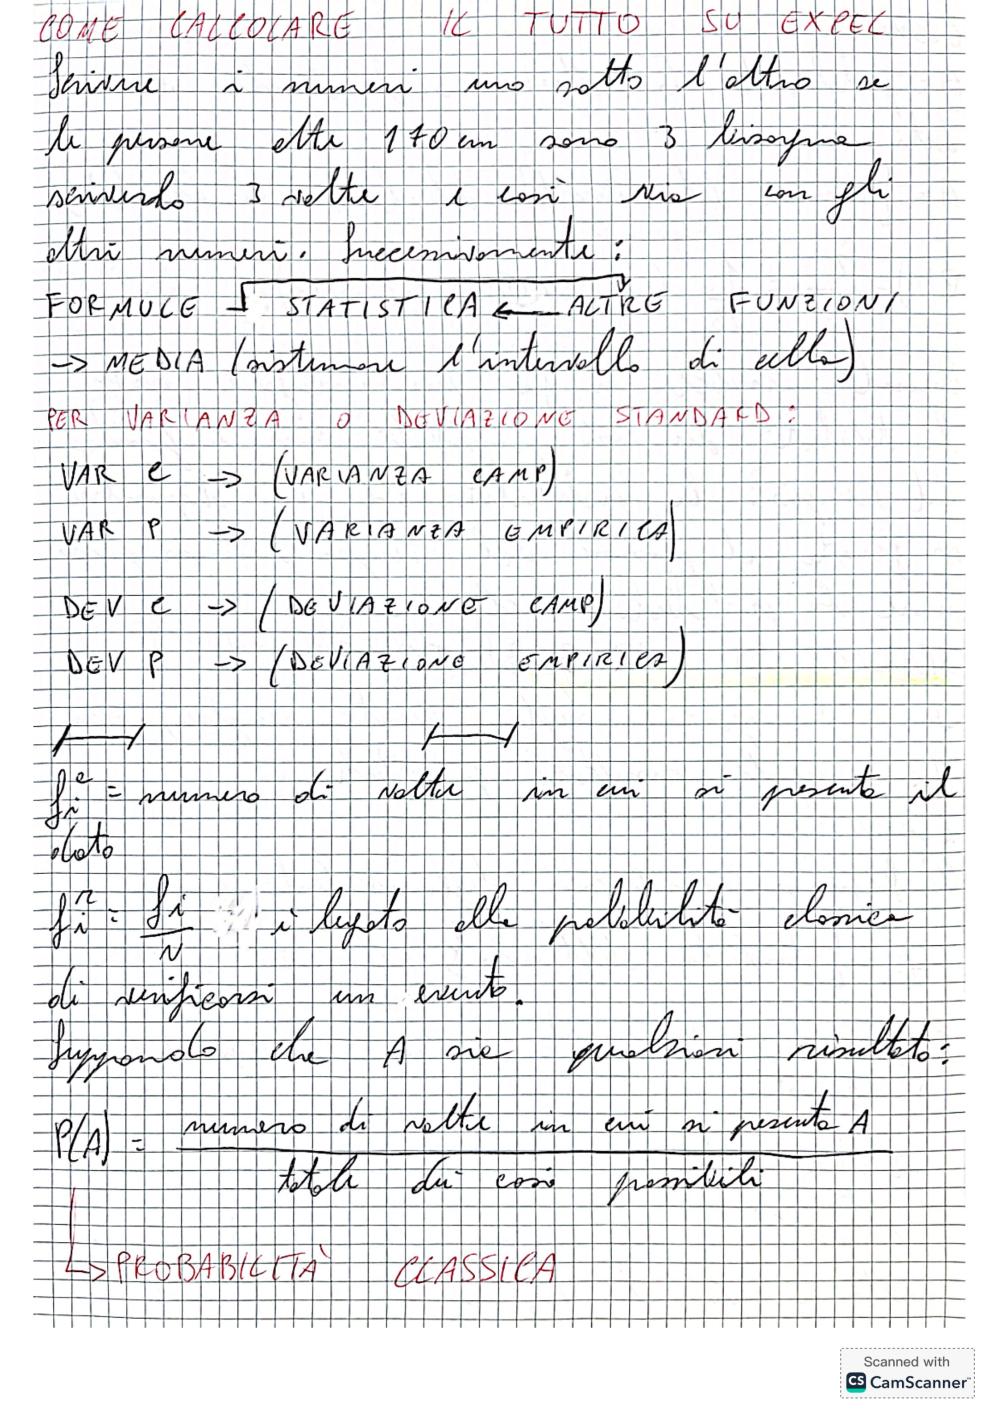 COME CALCOLARE IL TUTTO SU EXCEL
Scrivere i numeri uno sotto l'altro se
le persone alte 170 cm sono 3 bisogna
scriverlo 3 volte e così via con gli
altri numeri. Successivamente:
FORMULE STATISTICA ← ALTRE FUNZIONI
→ MEDIA (sistemare l'intervallo di celle)
PER VARIANZA O DEVIAZIONE STANDARD:
VAR C → (VARIANZA CAMP)
VAR P → (VARIANZA EMPIRICA)
DEV C → (DEVIAZIONE CAMP)
DEV P → (DEVIAZIONE EMPIRICA)
fᵢᵃ = numero di volte in cui si presenta il
dato
fᵢʳ = fi/N è legato alla probabilità classica
di verificarsi un evento.
Supponendo che A sia qualsiasi risultato:
P(A) = numero di volte in cui si presenta A
totale dei casi possibili
↳ PROBABILITÀ CLASSICA
Scanned with
CS CamScanner